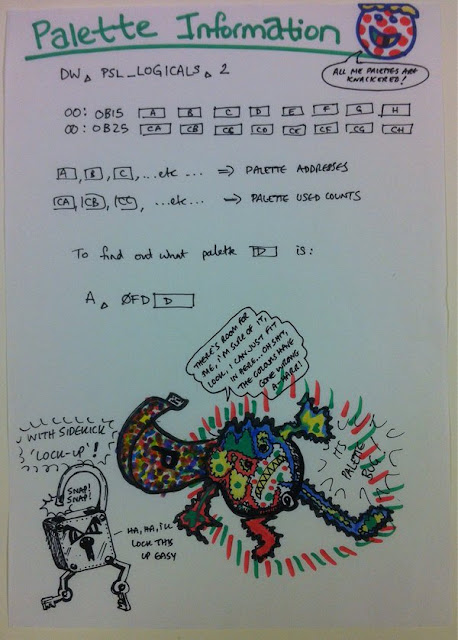 Palette Information
ALL ME PALETTES ARE
KNACKERED!
DW△ PSL_LOGICALS△ 2
00: 0B15 A B C D E F G H
00: 0B25 CA CB CC CD CE CF CG CH
A, B, C, ...etc ... ⇒ PALETTE ADDRESSES
CA, CB, CC, ...etc... ⇒ PALETTE USED COUNTS
To find out what palette D is:
A△ ØFD D
THERE'S ROOM FOR
ME, I'M SURE OF IT,
LOOK, I CAN JUST FIT
IN HERE... OH SHIT,
THE COLOURS HAVE
GONE WRONG
A-HARR!
WITH SIDEKICK
'LOCK-UP'!
SNAP!
SNAP!
HA, HA, I'LL
LOCK THIS
UP EASY
IT'S
PALETTE
BUG!